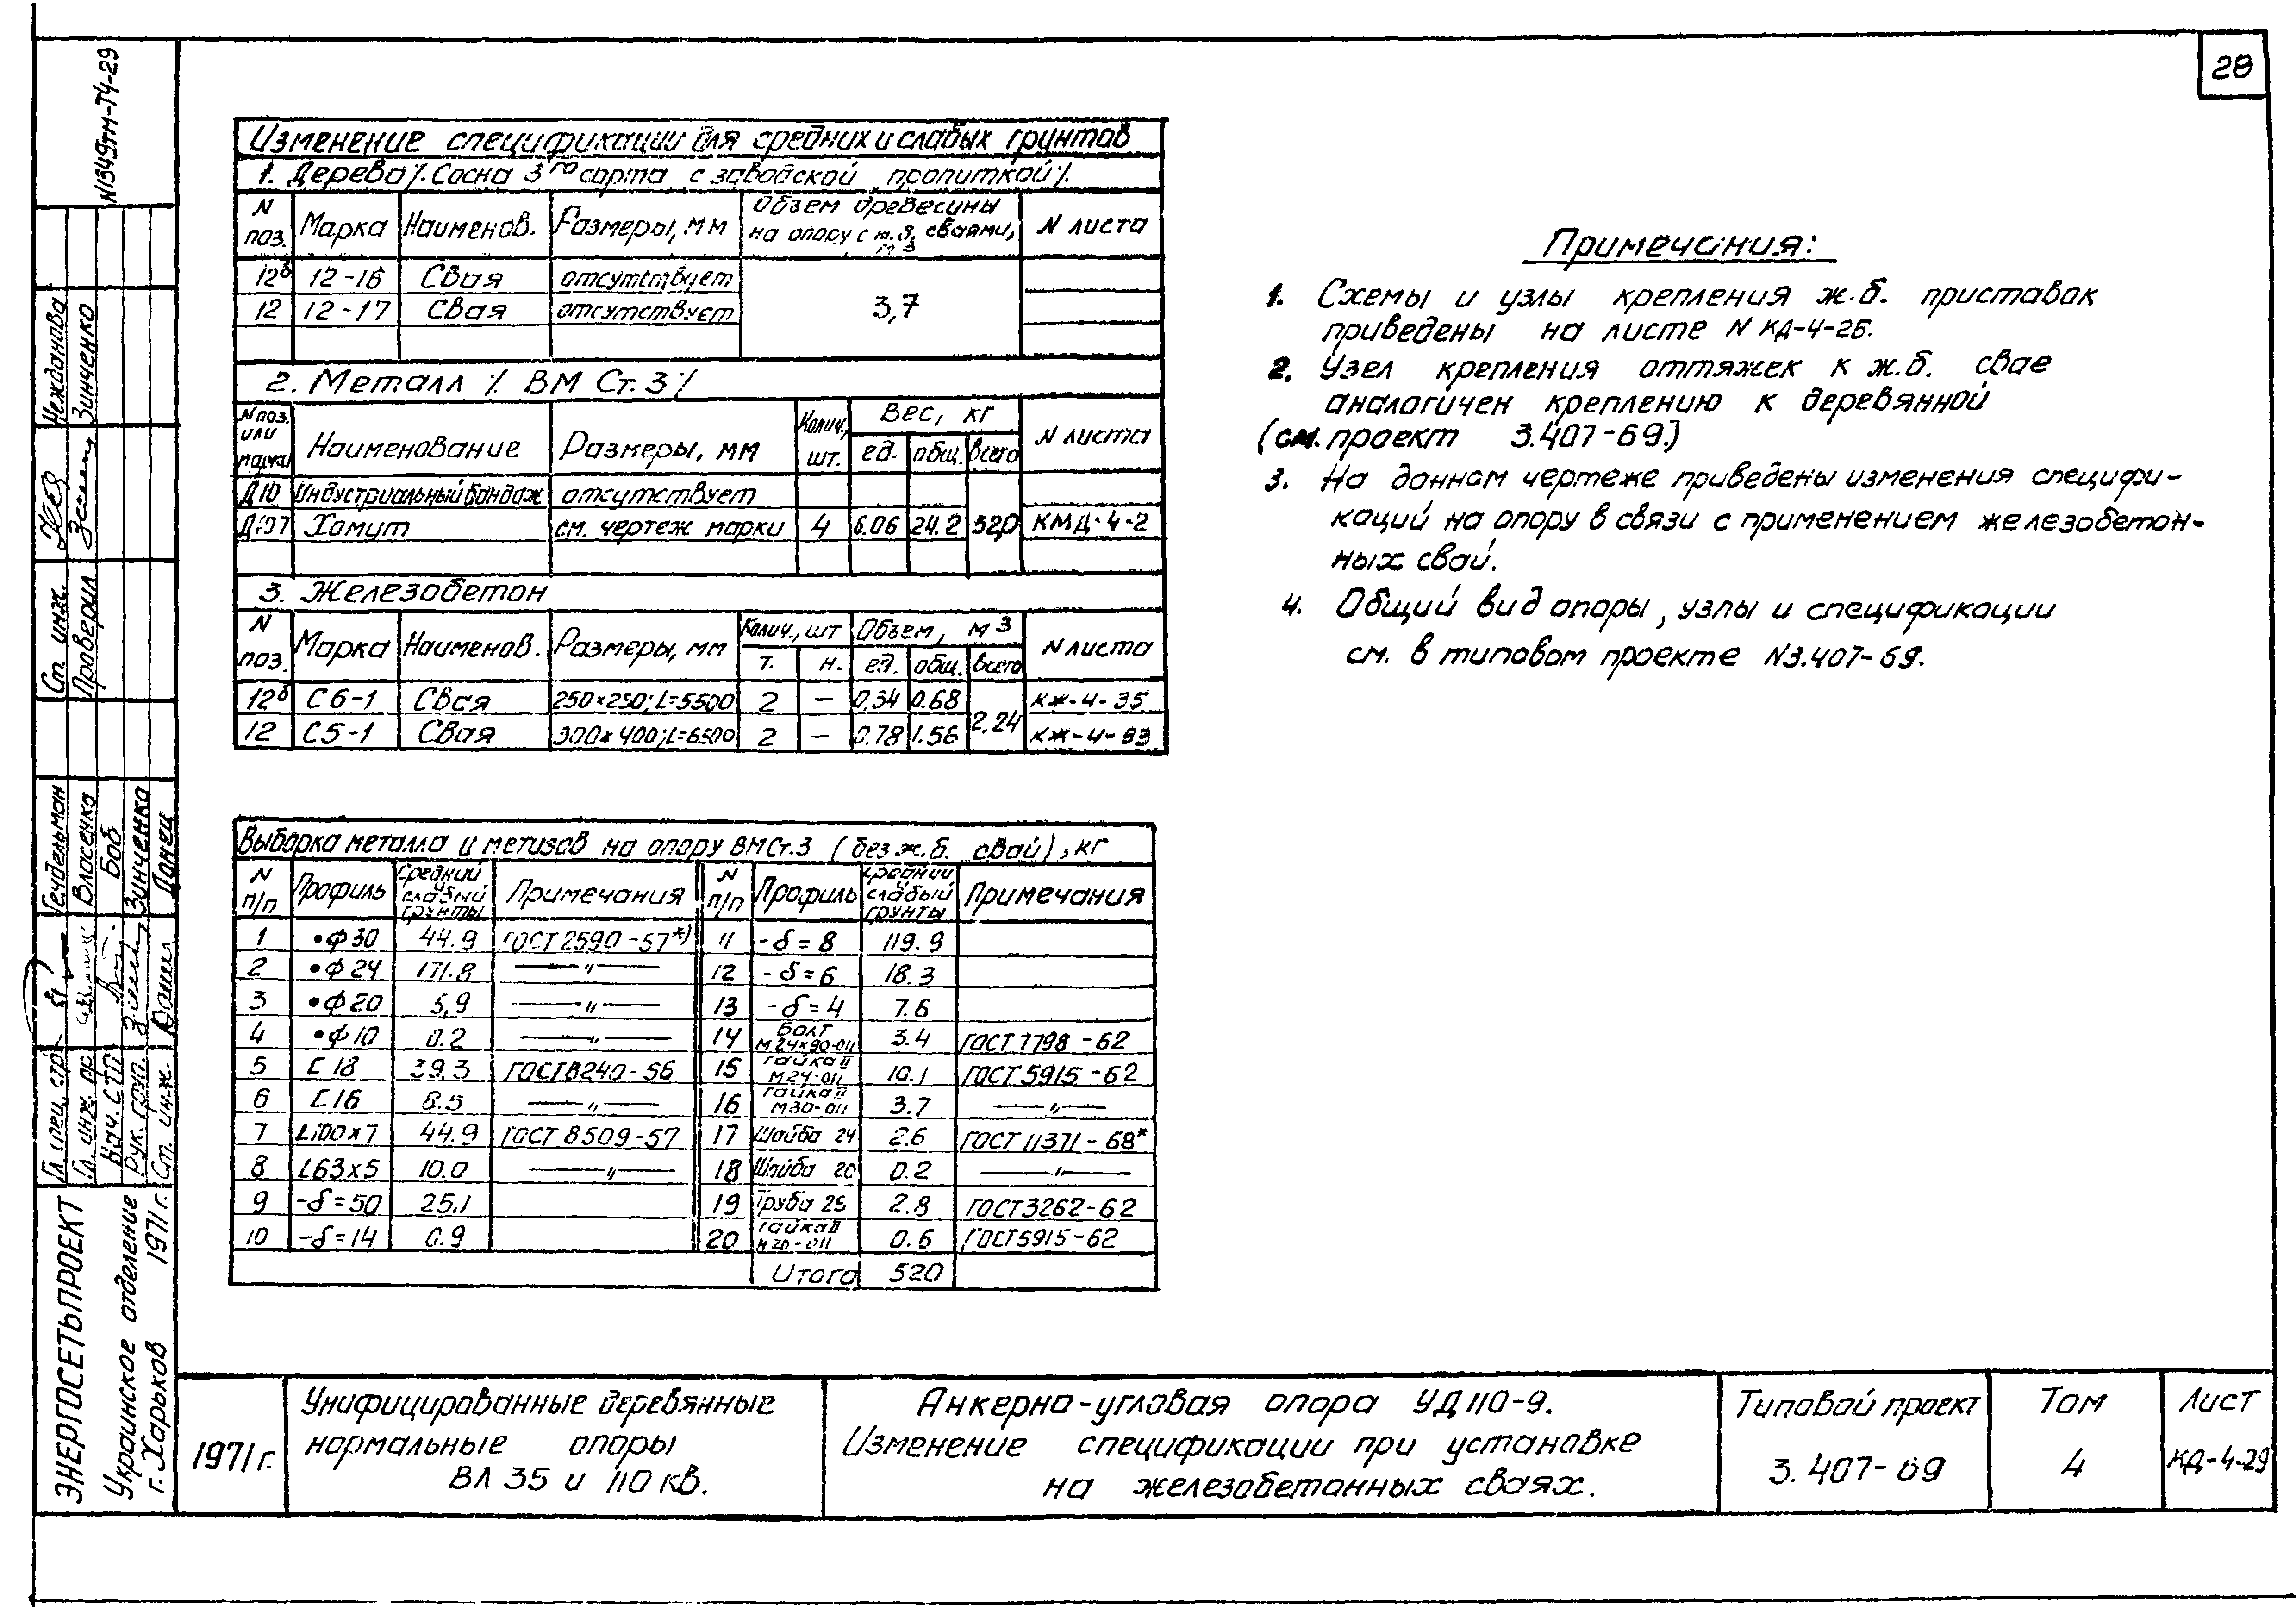 28
N1349тм-Т4-29
Изменение спецификации для средних и слабых грунтов
1. Дерево /. Сосна 3го сорта с заводской пропиткой /.
N поз. Марка Наименов. Размеры, мм Объем древесины на опору с ж.б. сваями, м3 N листа
12б 12-16 Свая отсутствует
12 12-17 Свая отсутствует 3,7
2. Металл /. ВМ Ст. 3 /
N поз. или марка Наименование Размеры, мм Колич., шт. Вес, кг ед. общ. всего N листа
Д10 Индустриальный бандаж отсутствует
Д107 Хомут см. чертеж марки 4 6.06 24.2 520 КМД-4-2
3. Железобетон
N поз. Марка Наименов. Размеры, мм Колич., шт т. н. Объем, м3 ед. общ. всего N листа
12б С6-1 Свая 250×250; L=5500 2 — 0,34 0.68 2.24 КЖ-4-35
12 С5-1 Свая 300×400; L=6500 2 — 0.78 1.56 КЖ-4-33
Выборка металла и метизов на опору ВМСт.3 (без ж.б. свай), кг
N п/п Профиль Средний и слабый грунты Примечания N п/п Профиль Средний и слабый грунты Примечания
1 •Ф30 44.9 ГОСТ 2590-57*) 11 -δ=8 119.9
2 •Ф24 171.8 —〃— 12 -δ=6 18.3
3 •Ф20 5,9 —〃— 13 -δ=4 7.6
4 •Ф10 0.2 —〃— 14 Болт М24×90-011 3.4 ГОСТ 7798-62
5 [18 39.3 ГОСТ 8240-56 15 Гайка II М24-011 10.1 ГОСТ 5915-62
6 [16 8.5 —〃— 16 Гайка II М30-011 3.7 —〃—
7 L100×7 44.9 ГОСТ 8509-57 17 Шайба 24 2.6 ГОСТ 11371-68*
8 L63×5 10.0 —〃— 18 Шайба 20 0.2 —〃—
9 -δ=50 25.1 19 Труба 25 2.8 ГОСТ 3262-62
10 -δ=14 0.9 20 Гайка II М20-011 0.6 ГОСТ 5915-62
Итого 520
Примечания:
1. Схемы и узлы крепления ж.б. приставок
приведены на листе N КД-4-26.
2. Узел крепления оттяжек к ж.б. свае
аналогичен креплению к деревянной
(см. проект 3.407-69.)
3. На данном чертеже приведены изменения специфи-
каций на опору в связи с применением железобетон-
ных свай.
4. Общий вид опоры, узлы и спецификации
см. в типовом проекте N3.407-69.
Ст. инж. Нежданова
Проверил Зинченко
Гл. спец. стр. Гендельман
Гл. инж. пр. Власенко
Нач. СТП Боб
Рук. груп. Зинченко
Ст. инж. Донец
ЭНЕРГОСЕТЬПРОЕКТ
Украинское отделение
г. Харьков 1971 г.
1971 г.
Унифицированные деревянные
нормальные опоры
ВЛ 35 и 110 кв.
Анкерно-угловая опора УД110-9.
Изменение спецификации при установке
на железобетонных сваях.
Типовой проект
3.407-69
Том
4
Лист
КД-4-29